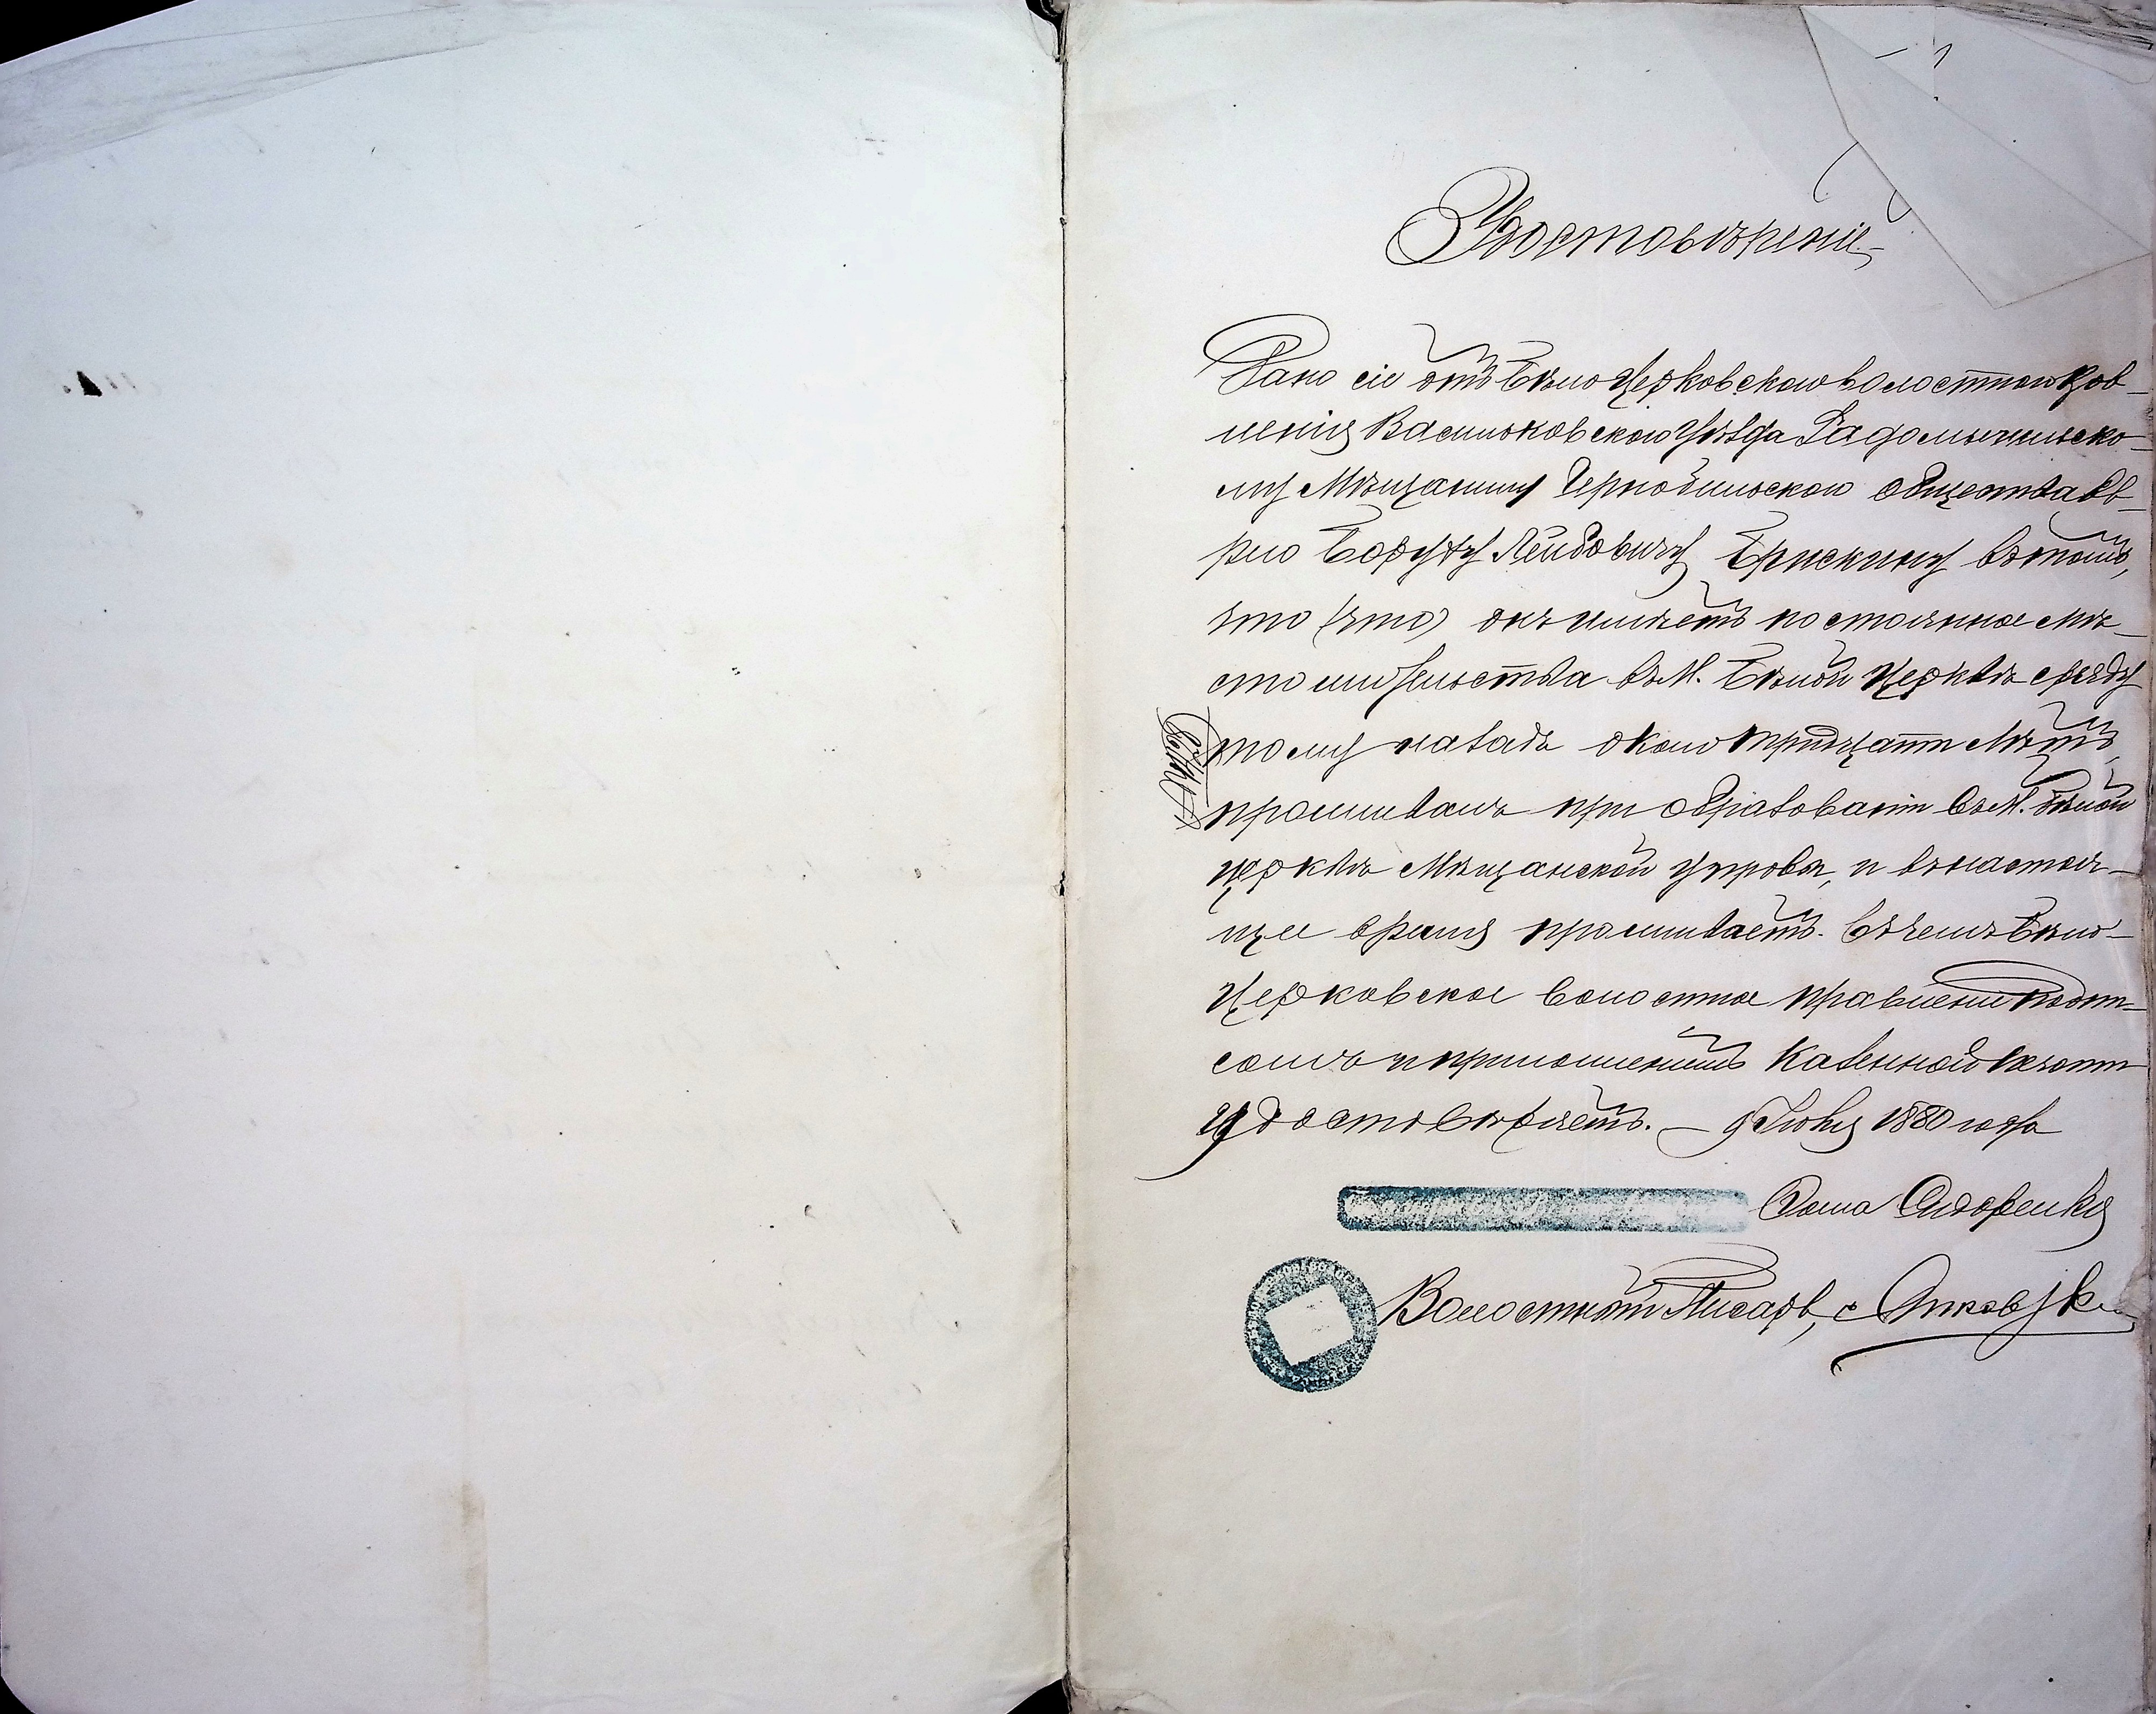 Удостовѣреніе
Дано сіе отъ Бѣлоцерковскаго волостнаго Прав-
ленія Васильковскаго уѣзда Радомысльско-
му Мѣщанину Чернобильскаго общества Ев-
рею Боруху Лейбовичу Брискину въ томъ,
что (что) онъ имѣетъ постоянное мѣ-
сто жительства въ М. Бѣлой Церквѣ
тому назадъ около тридцати лѣтъ,
проживалъ при образованіи въ М. Бѣлой
Церквѣ Мѣщанской управы, и въ настоя-
щее время проживаетъ. Въ чемъ Бѣло-
Церковское волостное правленіе подпи-
сомъ и приложеніемъ казенной печати
удостовѣряетъ. – 9 Іюня 1880 года
Фома Сидоренко
Волостной Писарь,